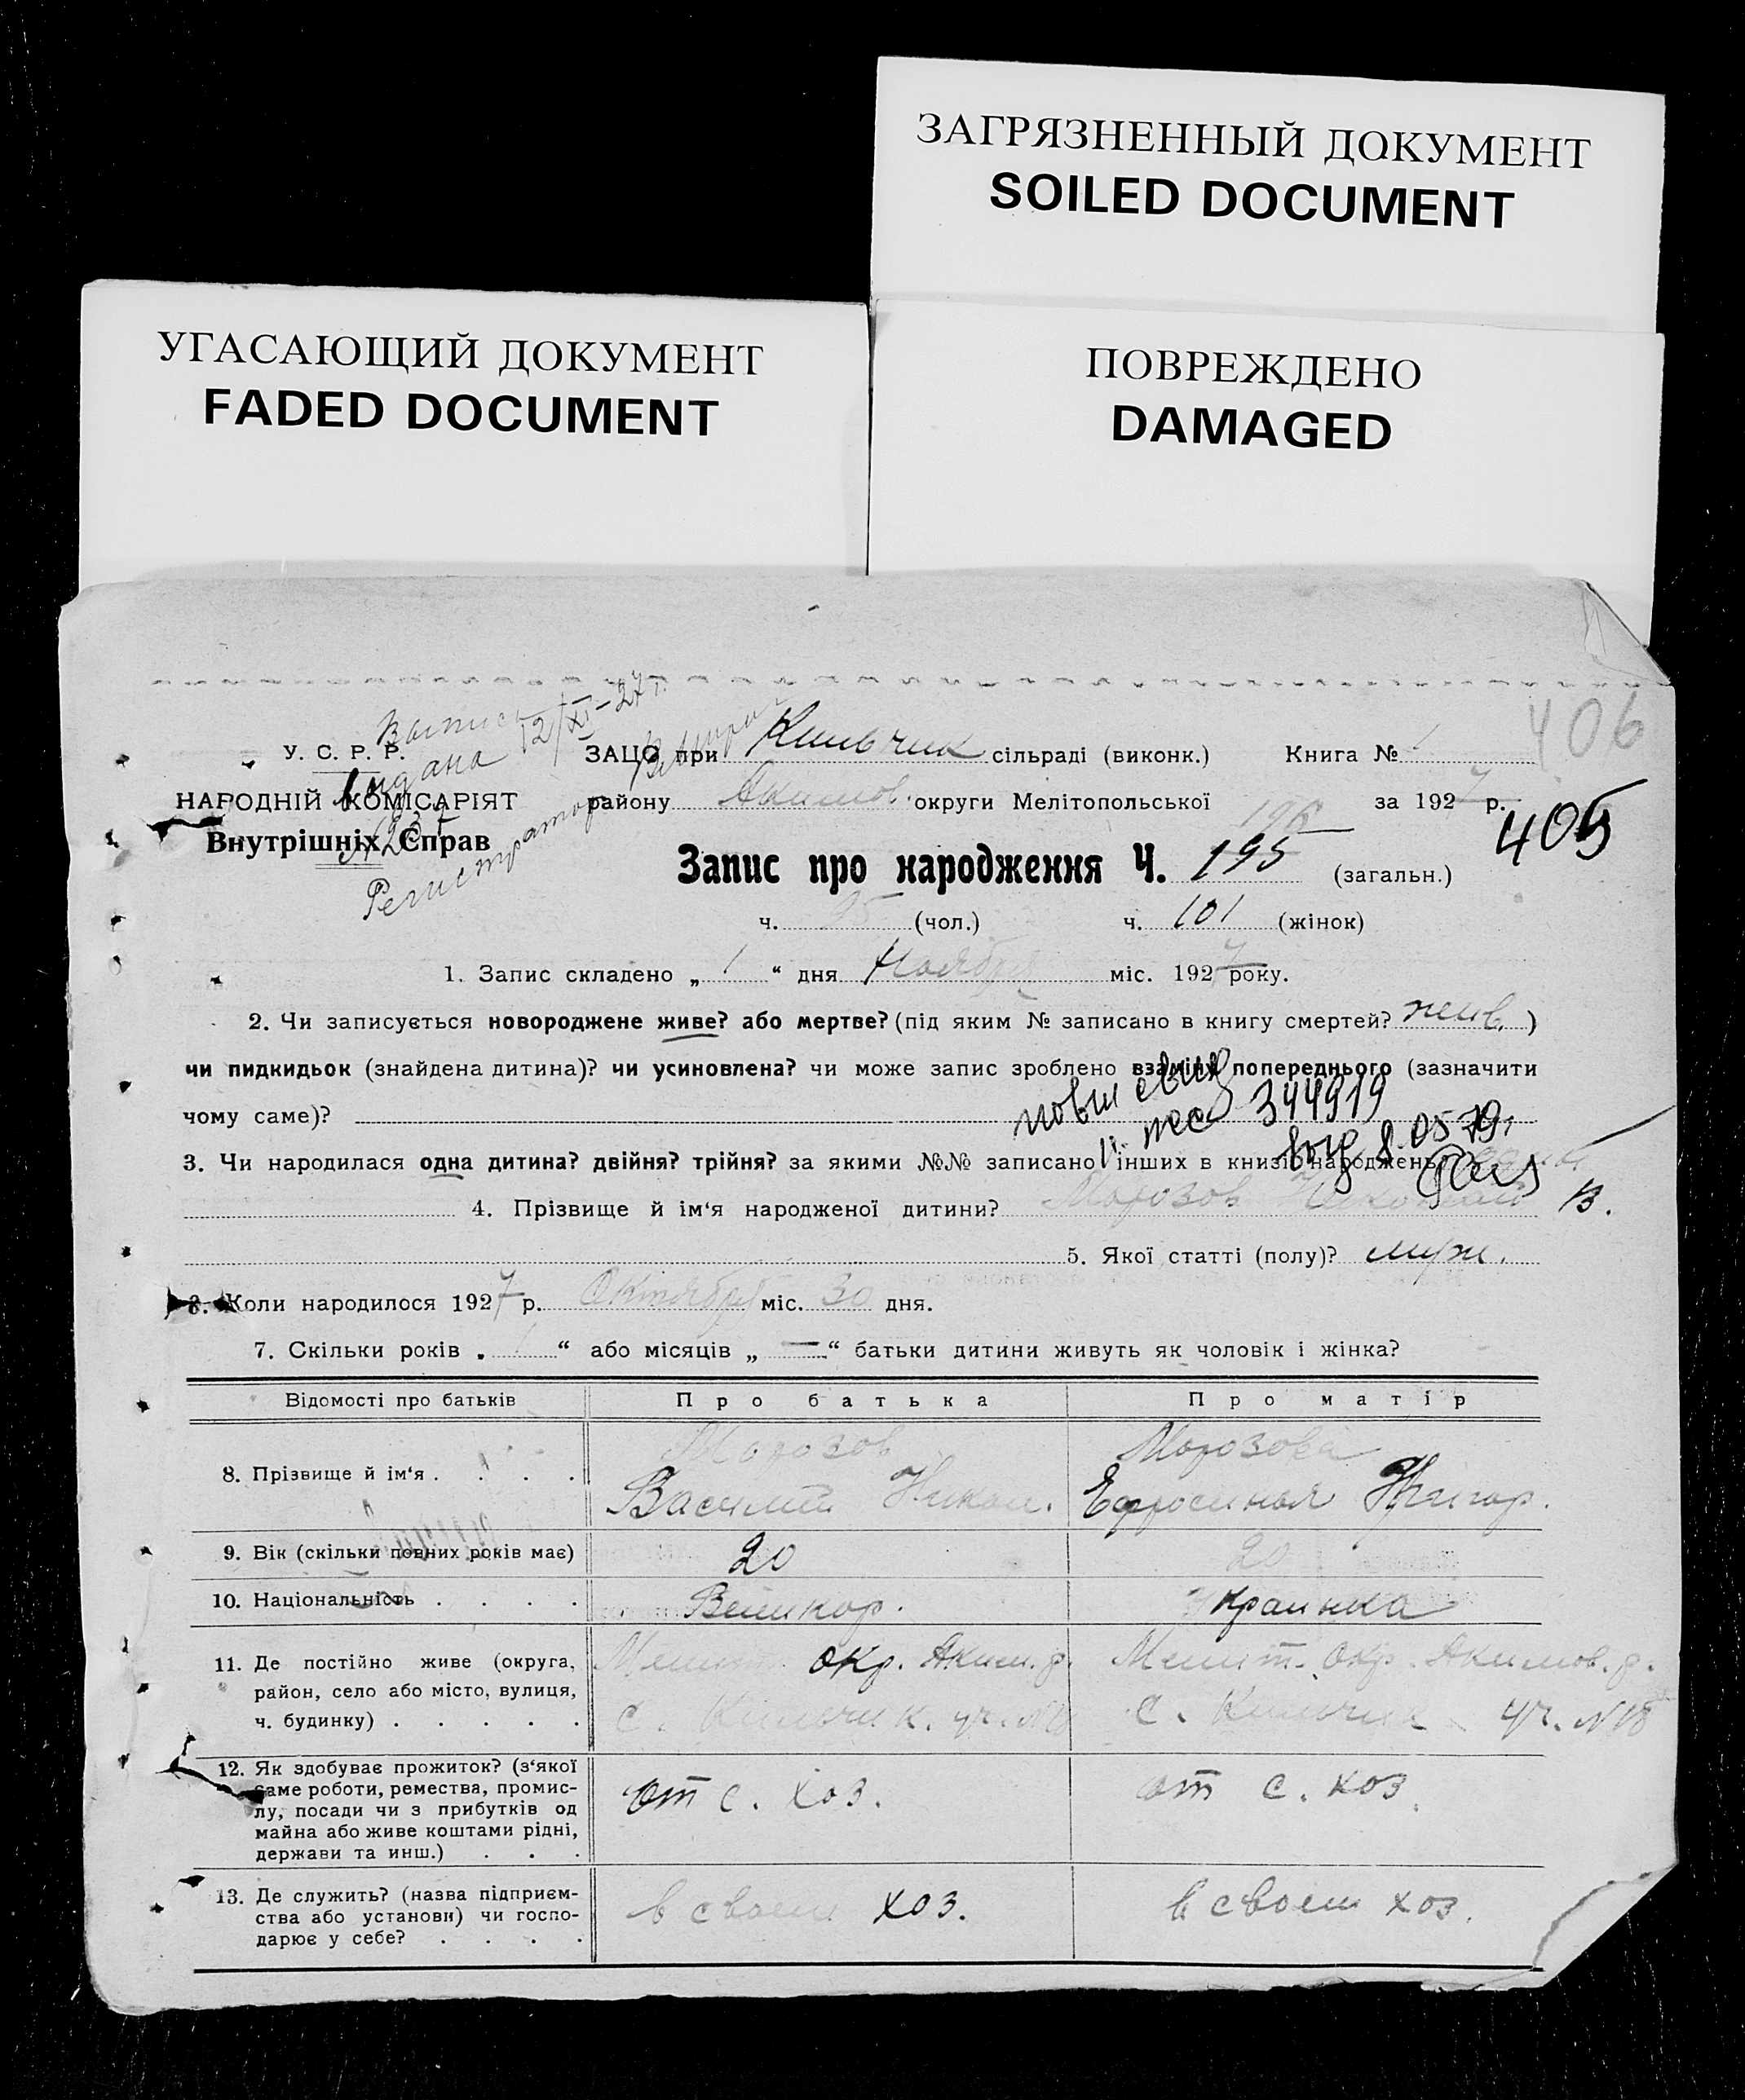 ЗАГРЯЗНЕННЫЙ ДОКУМЕНТ
SOILED DOCUMENT
УГАСАЮЩИЙ ДОКУМЕНТ
FADED DOCUMENT
ПОВРЕЖДЕНО
DAMAGED
406
Выпись 12/XI-27 г.
видана
Регистратор
У. С. Р. Р.
НАРОДНІЙ КОМІСАРІЯТ
Внутрішніх Справ
ЗАЦС при Кильчик сільраді (виконк.) Книга № 1
району Акимов. округи Мелітопольської за 1927 р.
405
196
Запис про народження Ч. 195 (загальн.)
ч. 95 (чол.) ч. 101 (жінок)
1. Запис складено „ 1 “ дня Ноября міс. 1927 року.
2. Чи записується новороджене живе? або мертве? (під яким № записано в книгу смертей? жив. )
чи пидкидьок (знайдена дитина)? чи усиновлена? чи може запис зроблено взамін попереднього (зазначити
чому саме)?
344919
8.05 79г
3. Чи народилася одна дитина? двійня? трійня? за якими №№ записано інших в книзі народжень?
4. Прізвище й ім‘я народженої дитини? Морозов Николай В.
5. Якої статті (полу)? муж.
6. Коли народилося 1927 р. Октября міс. 30 дня.
7. Скільки років „ 1 “ або місяців „ — “ батьки дитини живуть як чоловік і жінка?
Відомості про батьків Про батька Про матір
8. Прізвище й ім‘я . . . . Морозов Морозова
Василий Никол. Ефросиния Григор.
9. Вік (скільки повних років має) 20 20
10. Національність . . . . Великор. Украинка
11. Де постійно живе (округа, Мелит. окр. Аким. р. Мелит. окр. Акимов. р.
район, село або місто, вулиця, с. Кильчик. уч. №18 с. Кильчик уч. №18
ч. будинку) . . . . .
12. Як здобуває прожиток? (з‘якої
саме роботи, ремества, промис- от с. хоз. от с. хоз.
лу, посади чи з прибутків од
майна або живе коштами рідні,
держави та инш.) . . .
13. Де служить? (назва підприєм- в своем хоз. в своем хоз.
ства або установи) чи госпо-
дарює у себе? . . . .